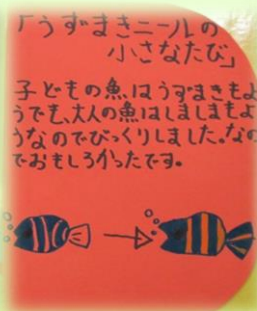 「うずまきニールの
小さなたび」
子どもの魚はうずまきもよ
うでも、大人の魚はしましまもよ
うなのでびっくりしました。なの
でおもしろかったです。